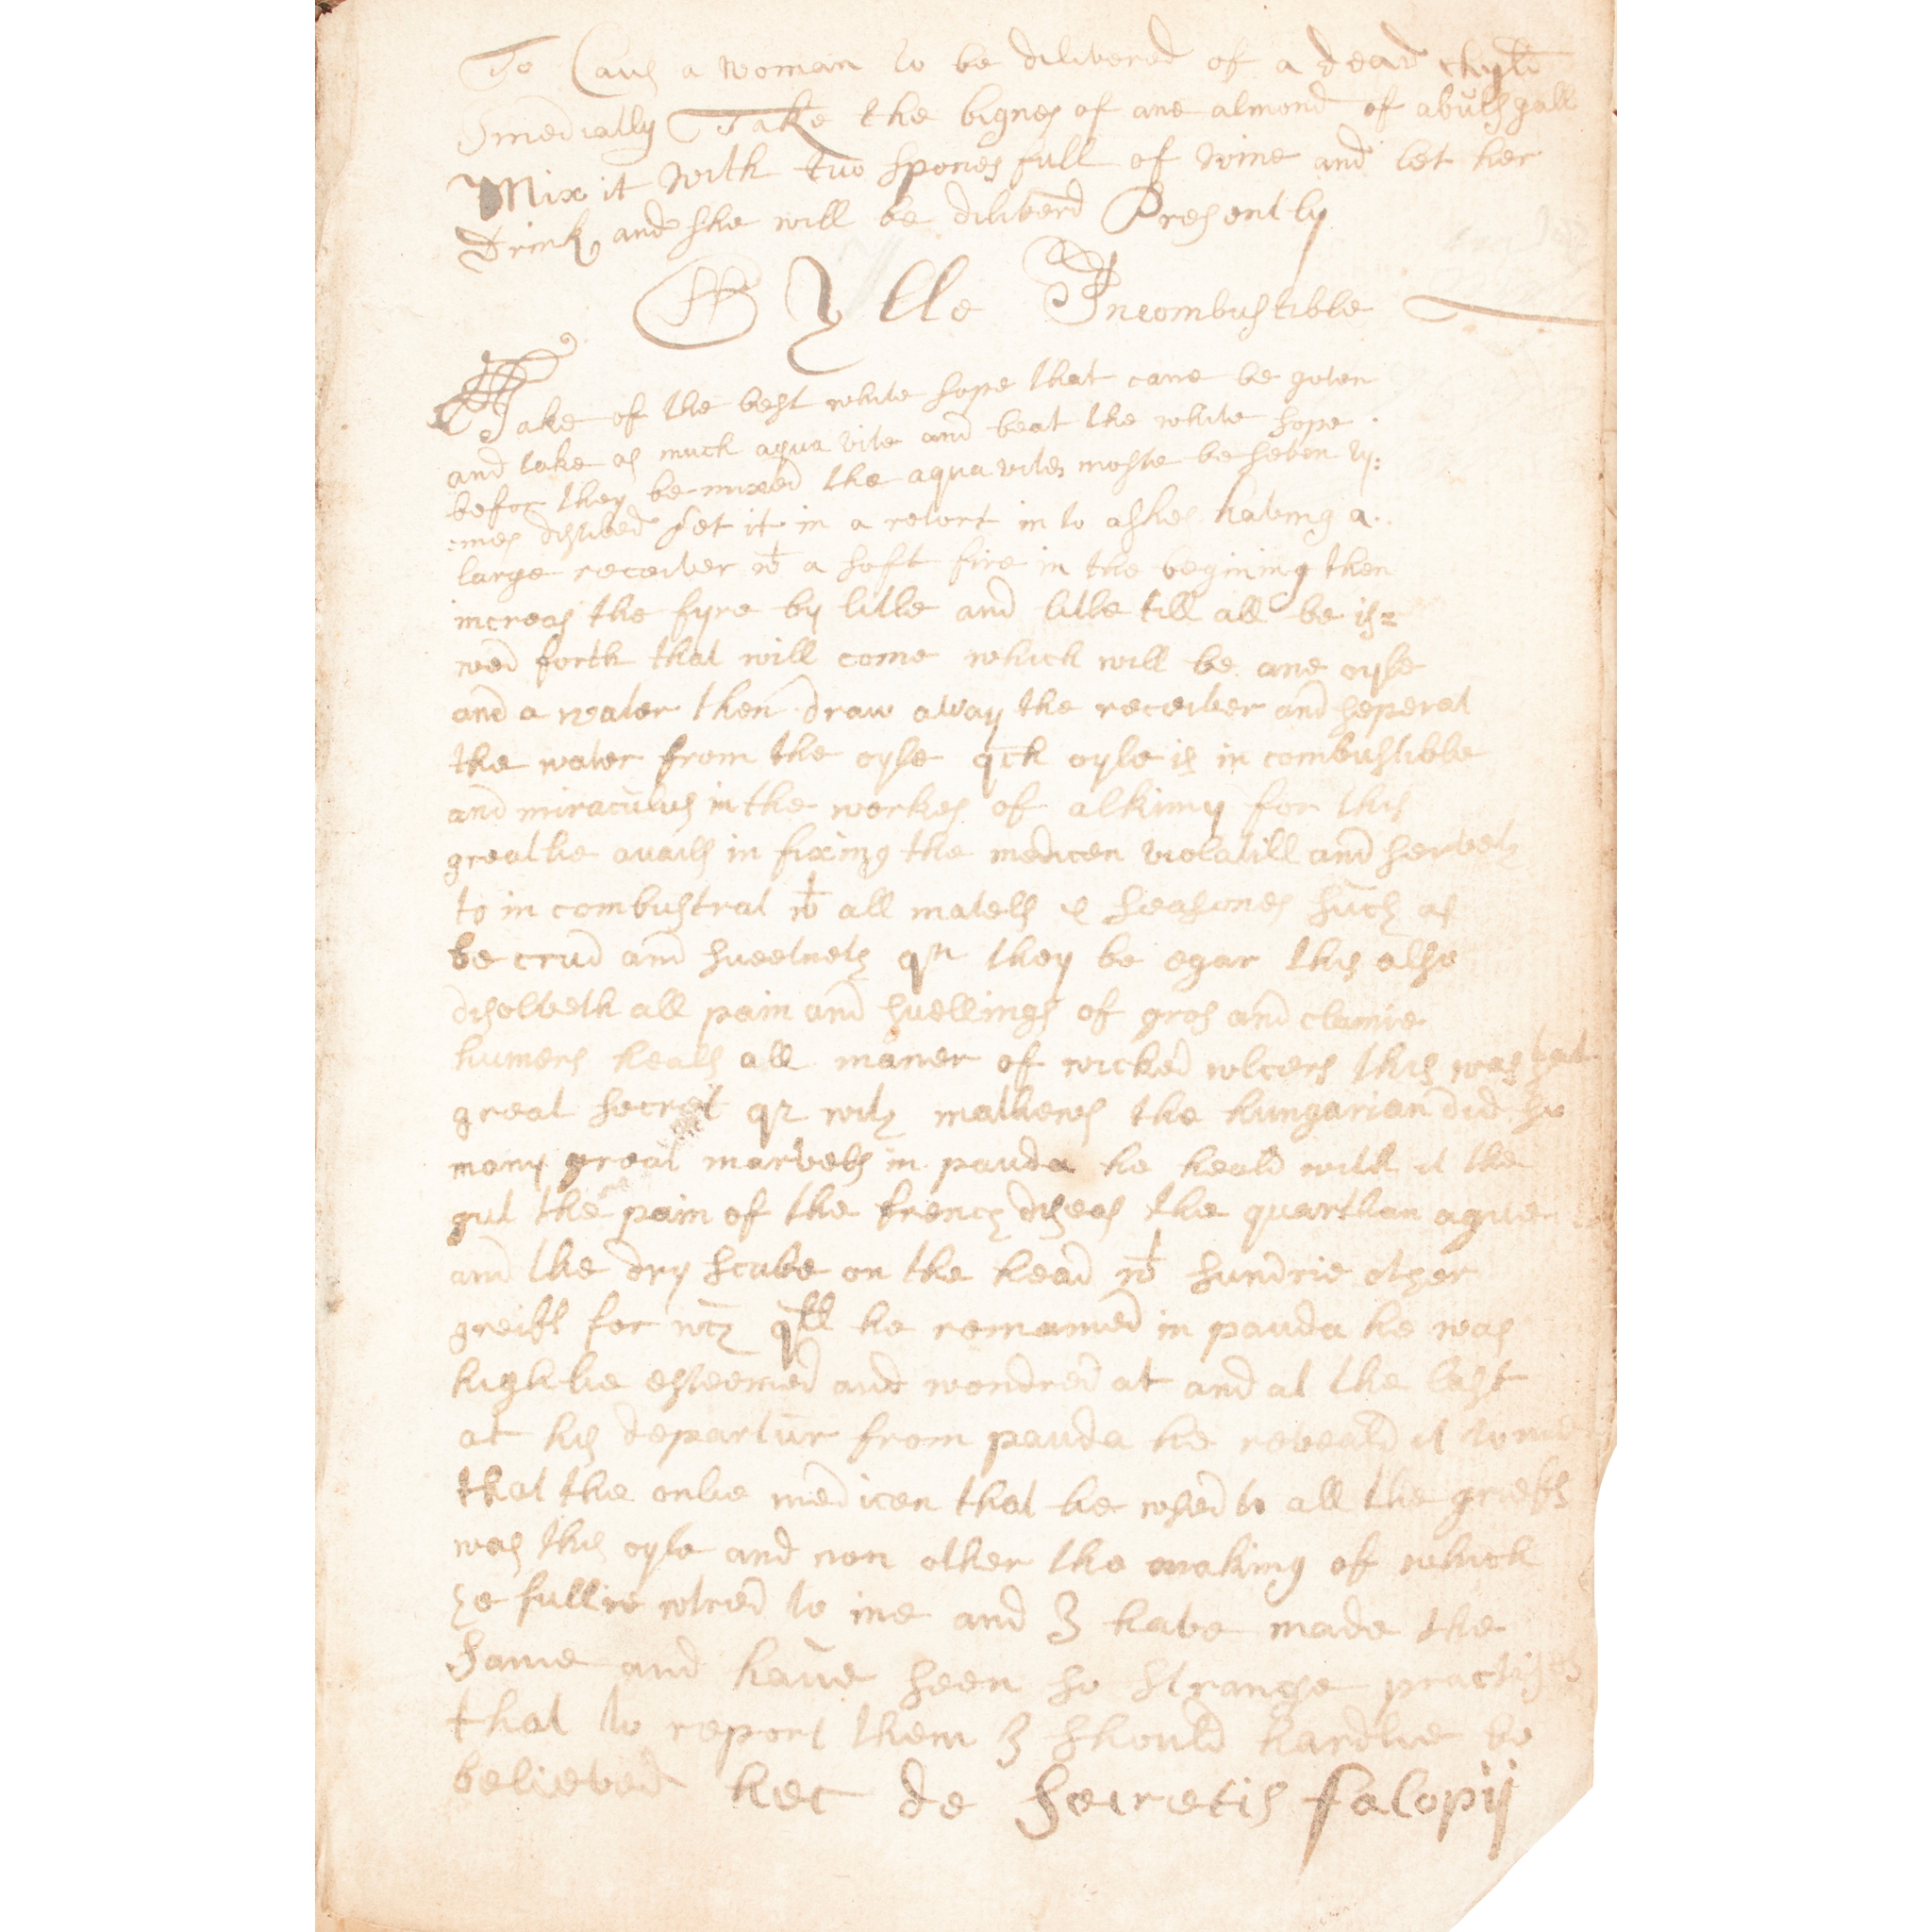 To Caus a woman to be dilivered of a dead chyld
Imediatly Take the bignes of ane almond of a buls gall
Mix it with tuo spones full of wine and let her
Drink and she will be diliverd Presently
Oylle Incombustible
Take of the best white sope that cane be goten
and take as much aqua vite and beat the white sope
befor they be mixed the aqua vite moste be seven ty:
:mes disteled set it in a retort in to ashes having a
large receiver wt a soft fire in the begining then
increas the fyre by litle and litle till all be is=
wed forth that will come which will be ane oyle
and a water then draw away the receiver and seperat
the water from the oyle qch oyle is in combustible
and miraculus in the workes of alkimy for this
greatlie avails in fixing the medicen violatill and serveth
to in combustrat wt all matells & seasones such as
be crud and sueetneth qn they be egar this also
disolveth all pain and suellings of gros and clamie
humers heals all maner of wicked wlcers this was that
great secret qr with matheus the hungarian did so
many great marvels in pauda he heald with it the
gut the pain of the french diseas the quarthan ague
and the dry scabe on the head wt sundrie other
greifs for wch qll he remained in pauda he was
highlie esteemed and wondred at and at the last
at his departur from pauda he reveald it to me
that the onlie medicen that he wsed to all the greifs
was this oyle and non other the making of which
he fullie wtred to me and I have made the
same and have seen so strange practises
that to report them I should hardlie be
believed hec de secretis falopij